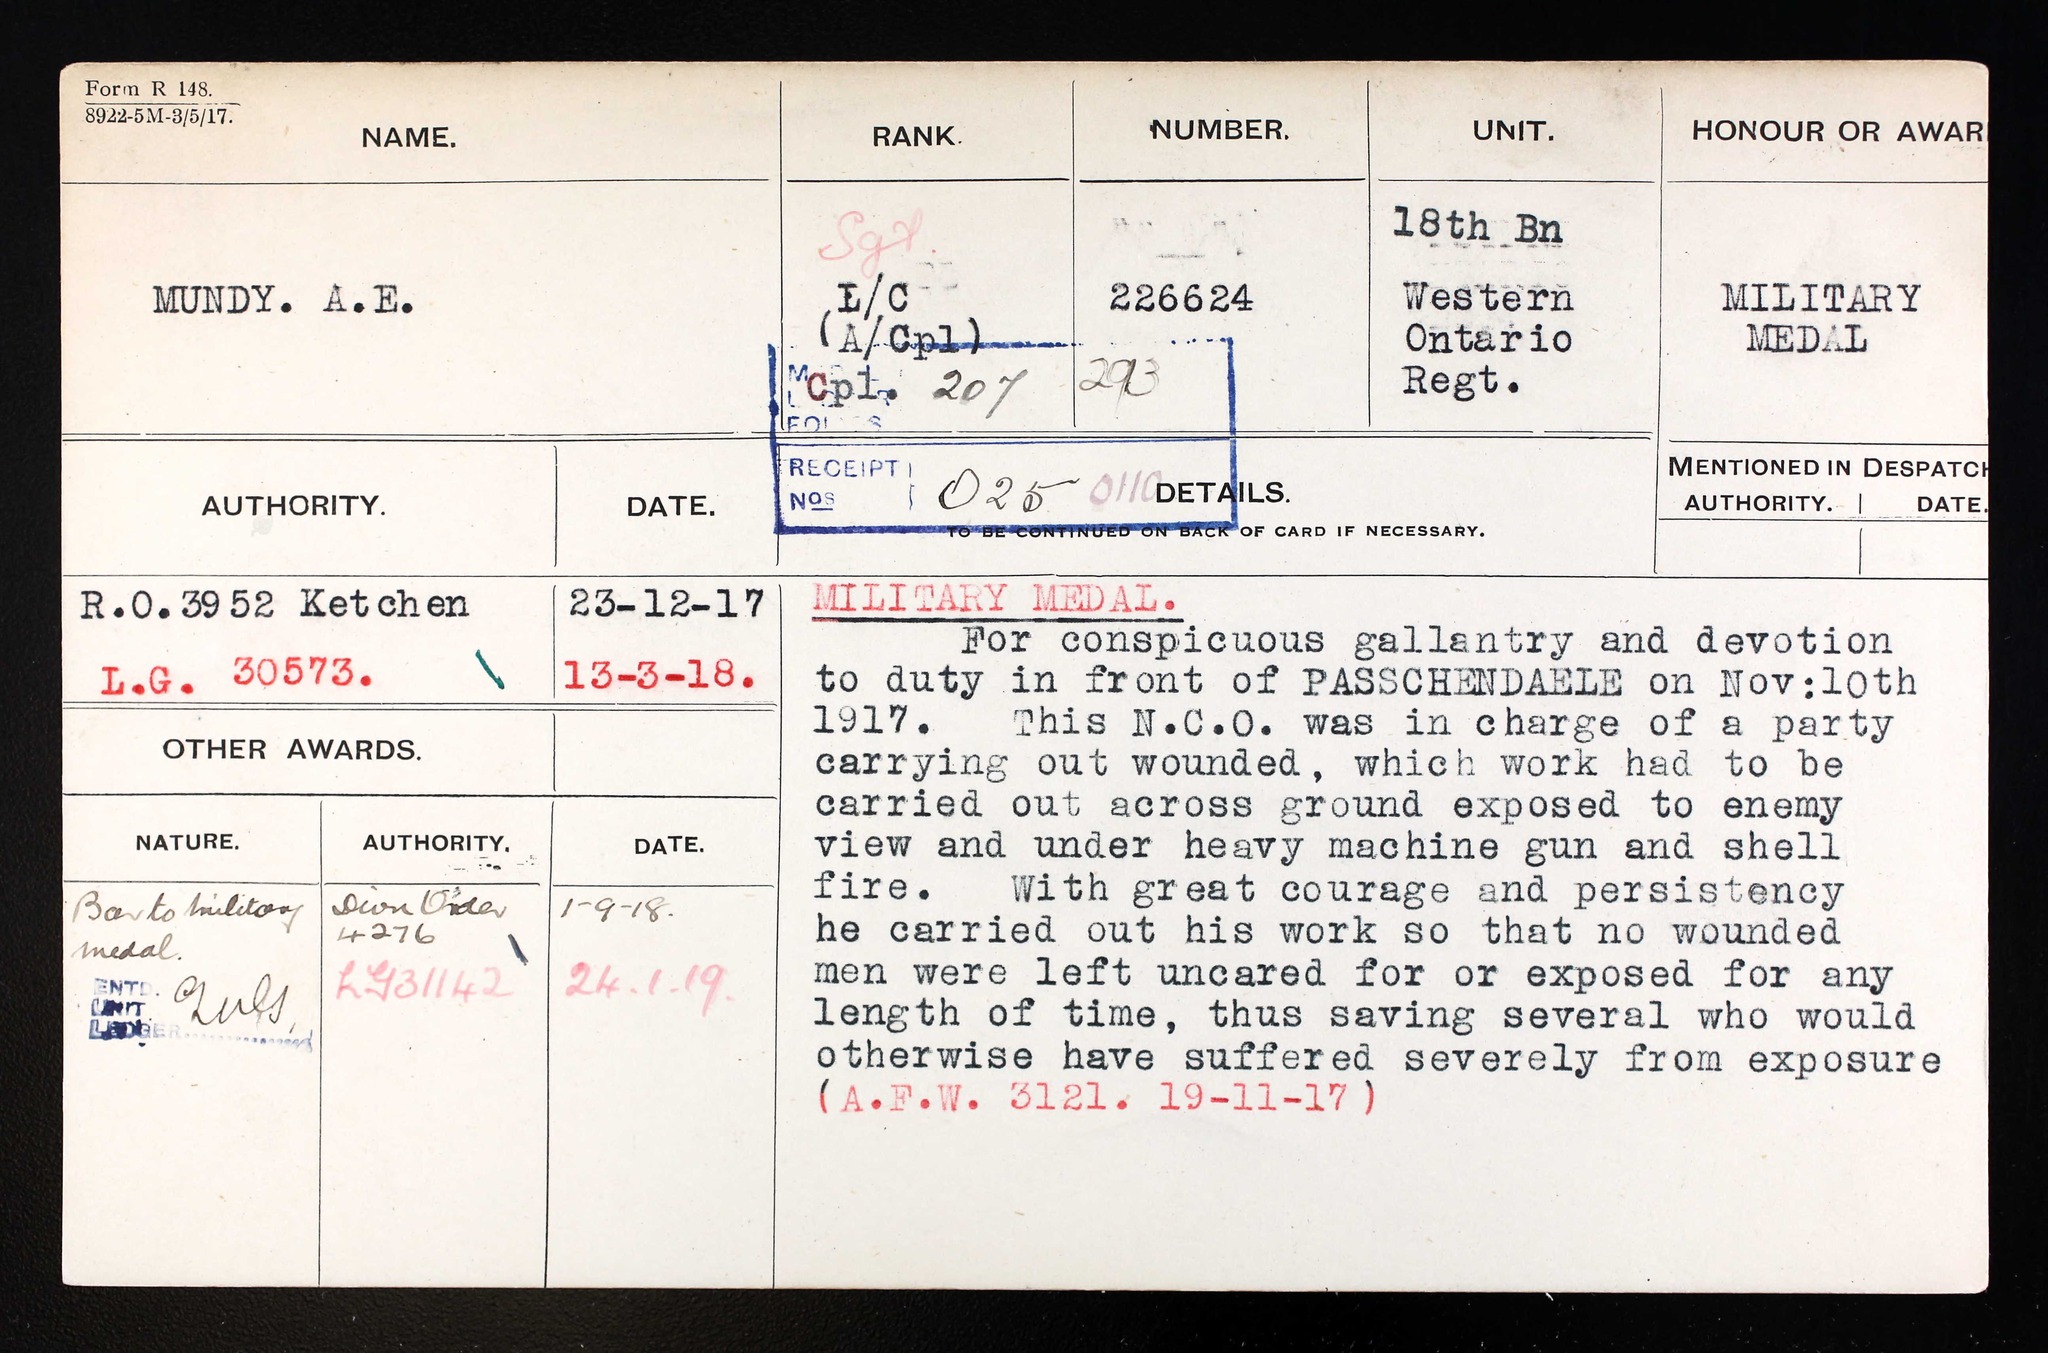 Form R 148.
8922-5M-3/5/17.
NAME.
RANK.
NUMBER.
UNIT.
HONOUR OR AWAR
MUNDY. A.E.
Sgt.
L/C
(A/Cpl)
Cpl. 207
226624
293
18th Bn
Western
Ontario
Regt.
MILITARY
MEDAL
AUTHORITY.
DATE.
RECEIPT
Nos
025 0110
DETAILS.
TO BE CONTINUED ON BACK OF CARD IF NECESSARY.
MENTIONED IN DESPATCH
AUTHORITY. DATE.
R.O.3952 Ketchen 23-12-17
L.G. 30573. 13-3-18.
MILITARY MEDAL.
For conspicuous gallantry and devotion
to duty in front of PASSCHENDAELE on Nov:10th
1917. This N.C.O. was in charge of a party
carrying out wounded, which work had to be
carried out across ground exposed to enemy
view and under heavy machine gun and shell
fire. With great courage and persistency
he carried out his work so that no wounded
men were left uncared for or exposed for any
length of time, thus saving several who would
otherwise have suffered severely from exposure
(A.F.W. 3121. 19-11-17)
OTHER AWARDS.
NATURE.
AUTHORITY.
DATE.
Bar to Military
medal.
Divn Order
4276
1-9-18.
LG31142
24.1.19.
ENTD.
UNIT
LEDGER